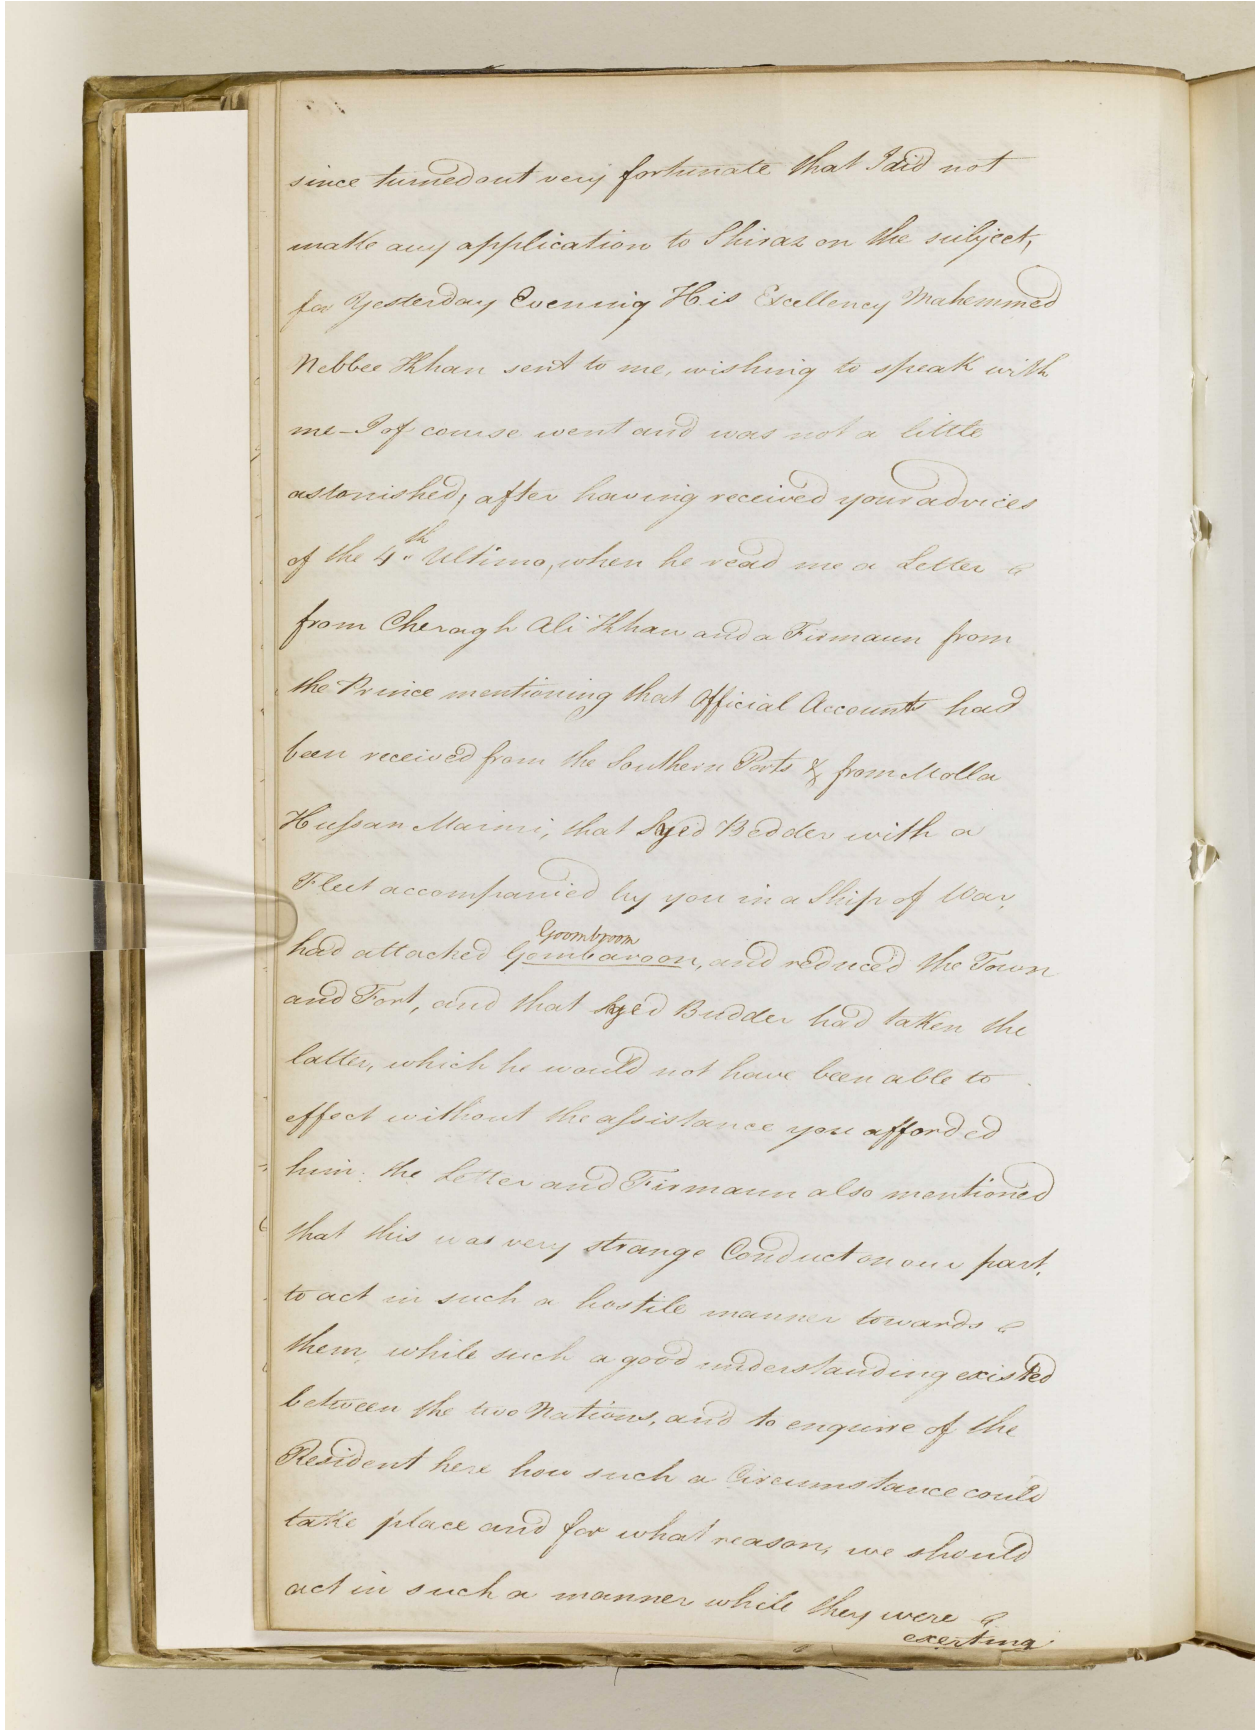 since turned out very fortunate that I did not
make any application to Shiraz on the subject,
for Yesterday Evening His Excellency Mahemmed
Nebbee Khan sent to me, wishing to speak with
me - I of course went and was not a little
astonished, after having received your advices
of the 4th Ultimo, when he read me a Letter
from Cheragh Ali Khan and a Firmaun from
the Prince mentioning that Official Accounts had
been received from the Southern Ports & from Molla
Hussan Maini, that Syed Bedder with a
Fleet accompanied by you in a Ship of War,
Goombroom
had attacked Gombaroon, and reduced the Town
and Fort, and that Syed Budder had taken the
latter, which he would not have been able to
effect without the assistance you afforded
him. the Letter and Firmaun also mentioned
that this was very strange Conduct on our part,
to act in such a hostile manner towards
them, while such a good understanding existed
between the two Nations, and to enquire of the
Resident here how such a Circumstance could
take place and for what reason, we should
act in such a manner while they were
exerting